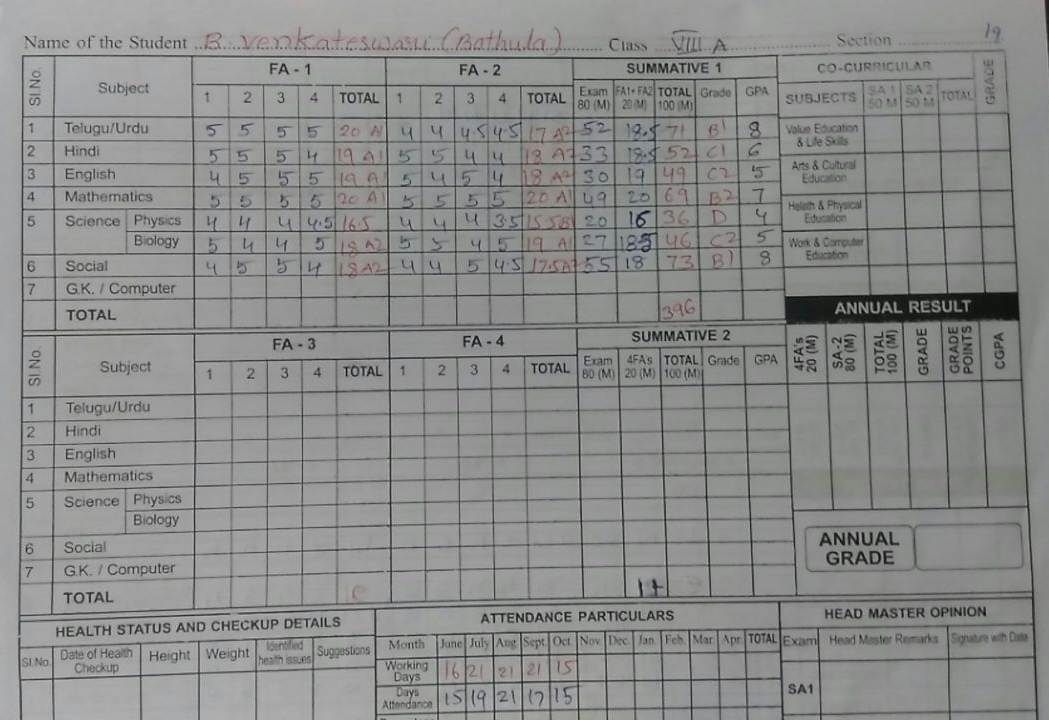 19
Name of the Student B. Venkateswari (Bathula) Class VIII A Section
Sl.No. Subject FA - 1 FA - 2 SUMMATIVE 1 CO-CURRICULAR GRADE
1 2 3 4 TOTAL 1 2 3 4 TOTAL Exam 80 (M) FA1+FA2 20 (M) TOTAL 100 (M) Grade GPA SUBJECTS SA 1 50 M SA 2 50 M TOTAL
1 Telugu/Urdu 5 5 5 5 20 A1 4 4 4.5 4.5 17 A2 52 18.5 71 B1 8 Value Education & Life Skills
2 Hindi 5 5 5 4 19 A1 5 5 4 4 18 A2 33 18.5 52 C1 6
3 English 4 5 5 5 19 A1 5 4 5 4 18 A2 30 19 49 C2 5 Arts & Cultural Education
4 Mathematics 5 5 5 5 20 A1 5 5 5 5 20 A1 49 20 69 B2 7
5 Science Physics 4 4 4 4.5 16.5 4 4 4 3.5 15.5 B1 20 16 36 D 4 Helath & Physical Education
Biology 5 4 4 5 18 A2 5 5 4 5 19 A1 27 18.5 46 C2 5 Work & Computer Education
6 Social 4 5 5 4 18 A2 4 4 5 4.5 17.5 A2 55 18 73 B1 8
7 G.K. / Computer
TOTAL 396
ANNUAL RESULT
4FA's 20 (M) SA-2 80 (M) TOTAL 100 (M) GRADE GRADE POINTS CGPA
Sl No. Subject FA - 3 FA - 4 SUMMATIVE 2
1 2 3 4 TOTAL 1 2 3 4 TOTAL Exam 80 (M) 4FAs 20 (M) TOTAL 100 (M) Grade GPA
1 Telugu/Urdu
2 Hindi
3 English
4 Mathematics
5 Science Physics
Biology
6 Social
7 G.K. / Computer
TOTAL
ANNUAL GRADE
HEALTH STATUS AND CHECKUP DETAILS
Sl.No. Date of Health Checkup Height Weight Identified health issues Suggestions
ATTENDANCE PARTICULARS
Month June July Aug Sept. Oct. Nov. Dec. Jan. Feb. Mar. Apr. TOTAL
Working Days 16 21 21 21 15
Days Attendance 15 19 21 17 15
HEAD MASTER OPINION
Exam Head Master Remarks Signature with Date
SA1